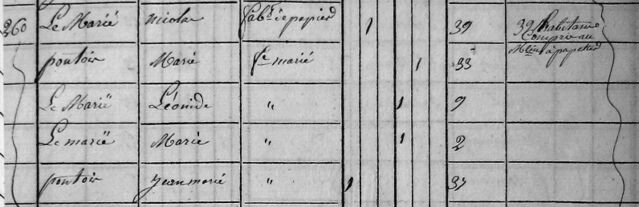 260 Le Marié nicolas fab.t de papier 1 39 39 habitant
Compris au
M.lin à papetier
pontoir Marie f.e marié 1 33
Le Marié Léonide " 1 9
Le marié Marie " 1 2
pontoir jean marie " 1 37